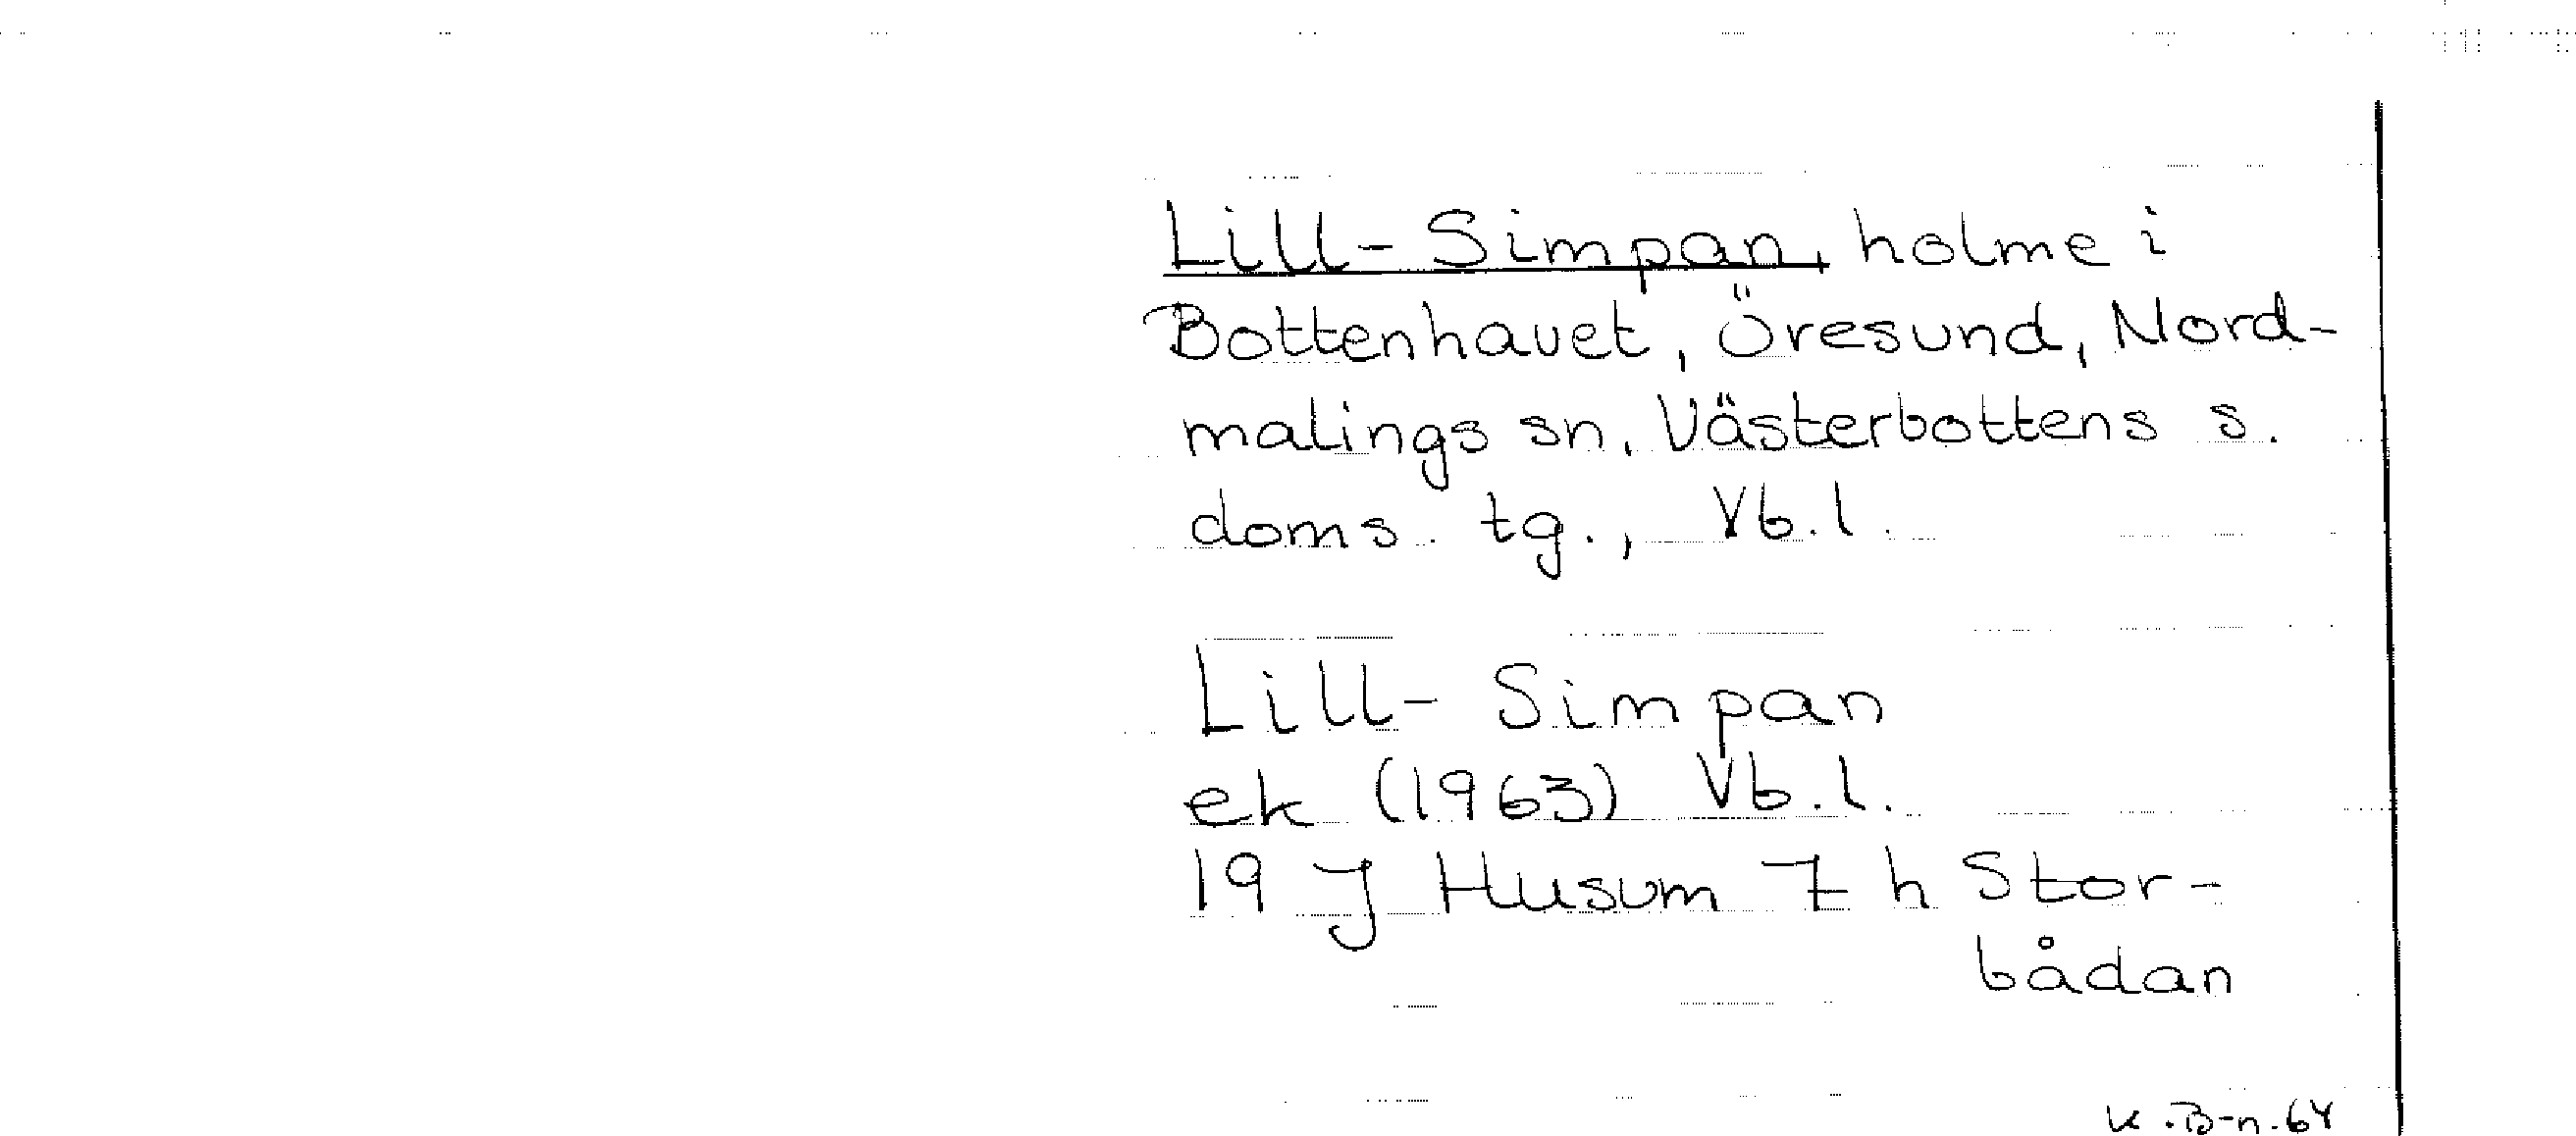 Lill-Simpan, holme i
Bottenhavet, Öresund, Nord-
malings sn. Västerbottens s.
doms. tg., Vb.l.
Lill-Simpan
ek (1963) Vb.l.
19 J Husum 7 h Stor-
bådan
K.B-n.64